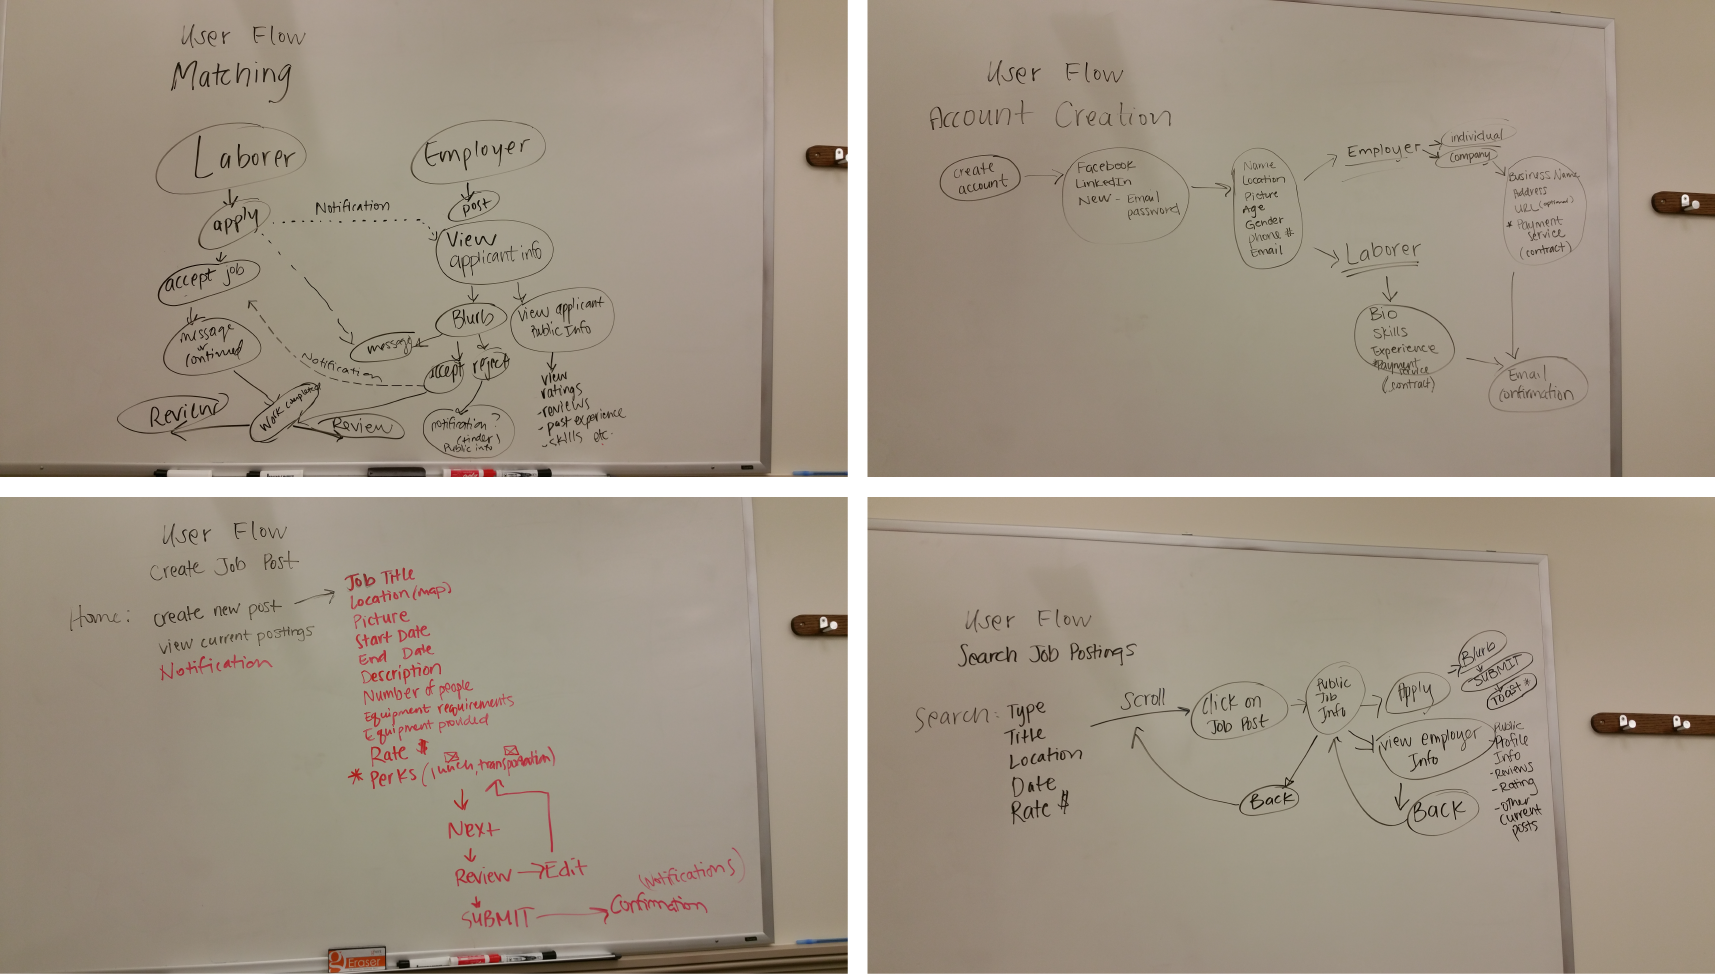 User Flow
Matching
Laborer
Employer
apply
Notification
post
View
applicant info
accept job
Blurb
View applicant
Public Info
message
continued
message
Notification
accept
reject
view
ratings
-reviews
-past experience
-skills etc.
Review
work completed
Review
notification?
(tinder)
Public info
User Flow
Account Creation
create
account
Facebook
LinkedIn
New - Email
password
Name
Location
Picture
Age
Gender
phone #
Email
Employer
individual
company
Business Name
Address
URL (optional)
* Payment
Service
(contract)
Laborer
Bio
Skills
Experience
*Payment
Service
(contract)
Email
confirmation
User Flow
Create Job Post
Home: create new post
view current postings
Notification
Job Title
Location (map)
Picture
Start Date
End Date
Description
Number of people
Equipment requirements
Equipment provided
Rate $
* Perks (lunch, transportation)
Next
Review
Edit
SUBMIT
(Notifications)
Confirmation
Eraser
User Flow
Search Job Postings
Search: Type
Title
Location
Date
Rate $
Scroll
Click on
Job Post
Public
Job
Info
Apply
Blurb
SUBMIT
Toast *
view employer
Info
Public
Profile
Info
-Reviews
-Rating
-other
current
posts
Back
Back